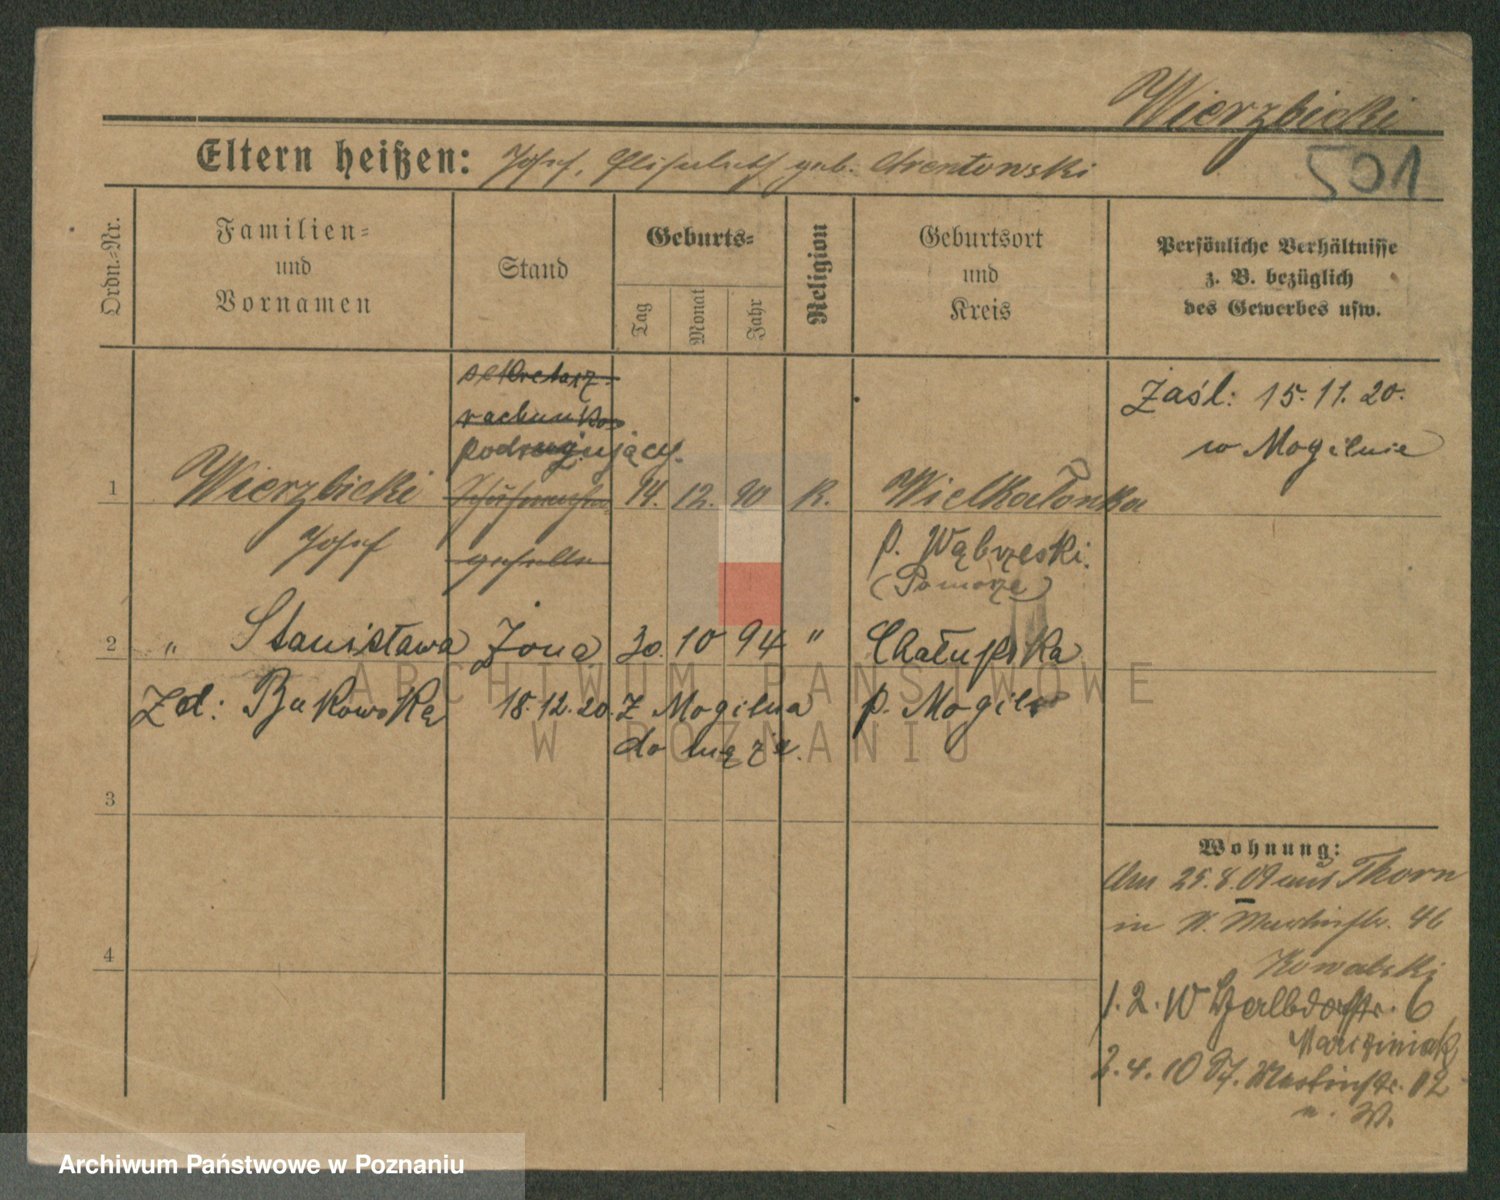 Wierzbicki
501
Eltern heißen: Josef, Elisabeth geb. Arentowski
Ordn.-Nr.
Familien-
und
Vornamen
Stand
Geburts-
Tag
Monat
Jahr
Religion
Geburtsort
und
Kreis
Persönliche Verhältnisse
z. B. bezüglich
des Gewerbes usw.
sekretarz
rachunko
podrugujący.
Zaśl: 15.11.20.
w Mogilnie
1 Wierzbicki 14. 12. 90 K. Wielkałonka
Josef geselle p. Wąbrzeski.
(Pomorze)
2 " Stanisława Żona 30. 10 94 " Chałupska
Zd: Bukowska 18.12.20. Z Mogilna p. Mogilno
do męża.
3
4
Wohnung:
Am 25.8.09 aus Thorn
in St. Martinstr. 46
Kowalski
1.2.10 Halbdorfstr. 6
Marciniak
2.4.10 St. Martinstr. 12
n. W.
ARCHIWUM PAŃSTWOWE
W POZNANIU
Archiwum Państwowe w Poznaniu